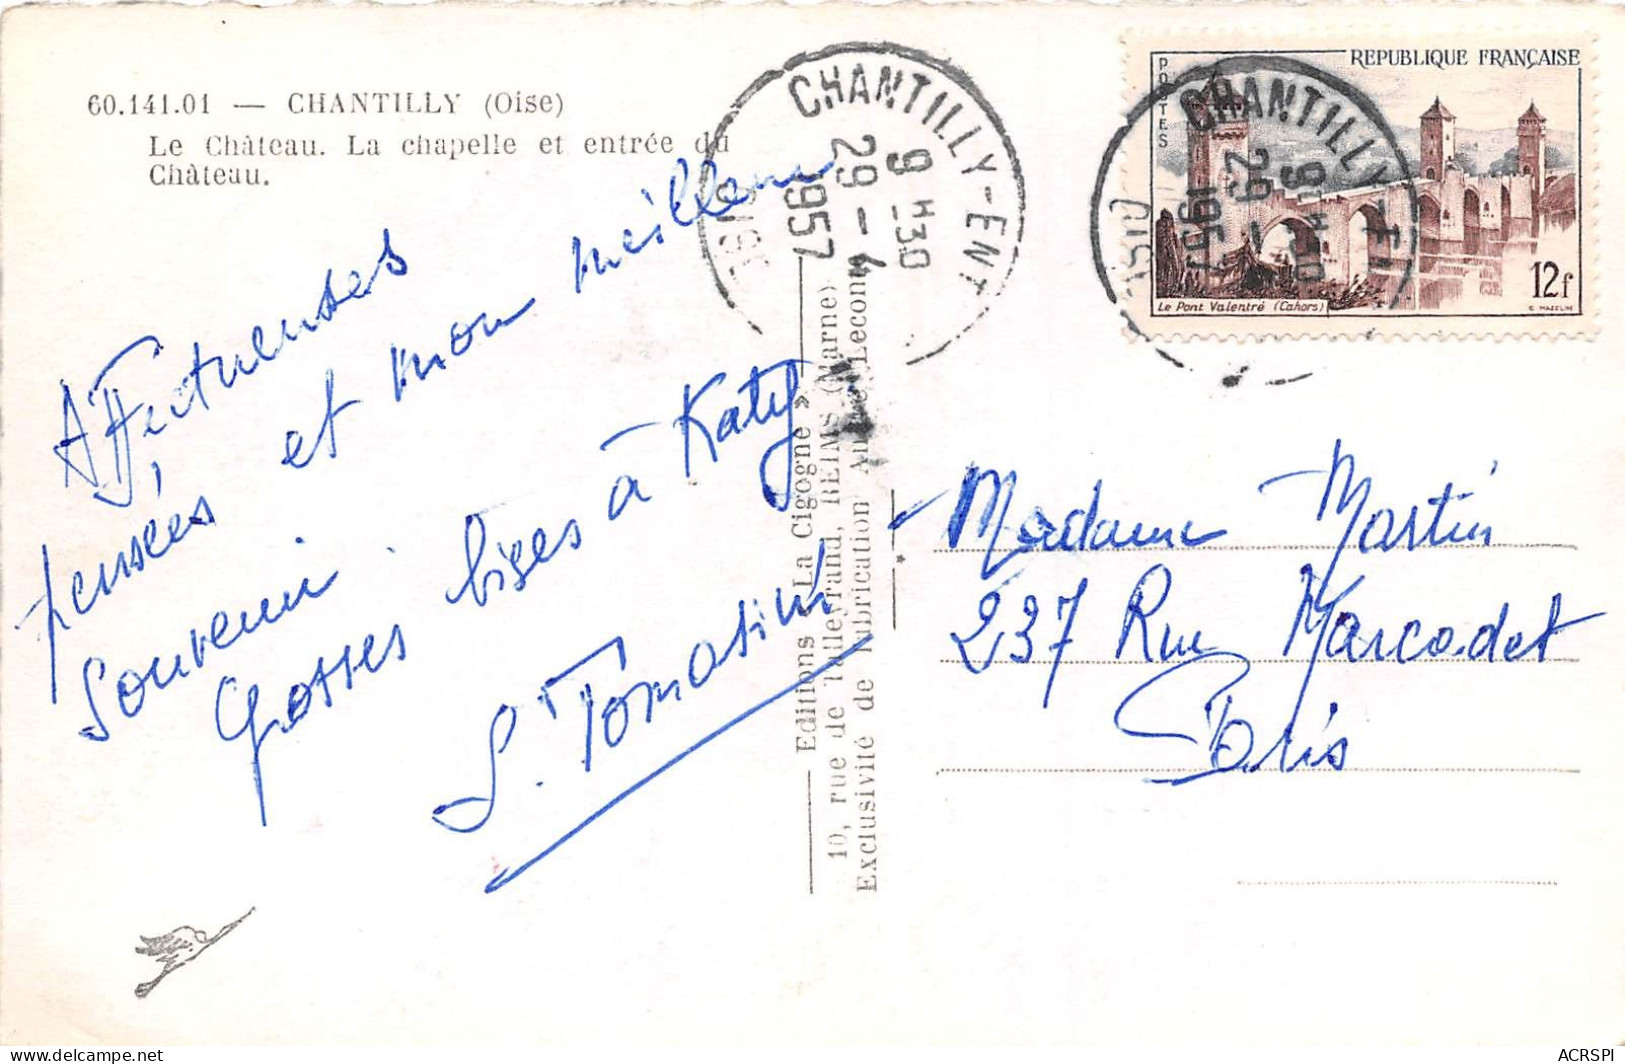 60.141.01 — CHANTILLY (Oise)
Le Château. La chapelle et entrée du
Château.
Affectueuses
pensées et mon meilleur
souvenir.
Grosses bises à Katy
S. Tomasini
CHANTILLY-ENT
9 H 30
29 - 4
1957
OISE
Editions « La Cigogne »
10, rue de Talleyrand, REIMS (Marne)
Exclusivité de fabrication
REPUBLIQUE FRANÇAISE
POSTES
12f
Le Pont Valentré (Cahors)
C. MAZELIN
CHANTILLY-ENT
9 H 30
29 -
1957
OISE
Madame Martin
237 Rue Marcadet
Paris
ACRSPI